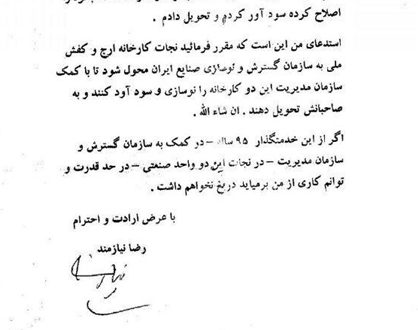 اصلاح کرده سود آور کردم و تحویل دادم .
استدعای من این است که مقرر فرمائید نجات کارخانه ارج و کفش
ملی به سازمان گسترش و نوسازی صنایع ایران محول شود تا با کمک
سازمان مدیریت این دو کارخانه را نوسازی و سود آود کنند و به
صاحبانش تحویل دهند . ان شاء الله .
اگر از این خدمتگذار ۹۵ ساله – دو کمک به سازمان گسترش و
سازمان مدیریت – در نجات این دو واحد صنعتی – در حد قدرت و
توانم کاری از من برمیاید دریغ نخواهم داشت .
با عرض ارادت و احترام
رضا نیازمند